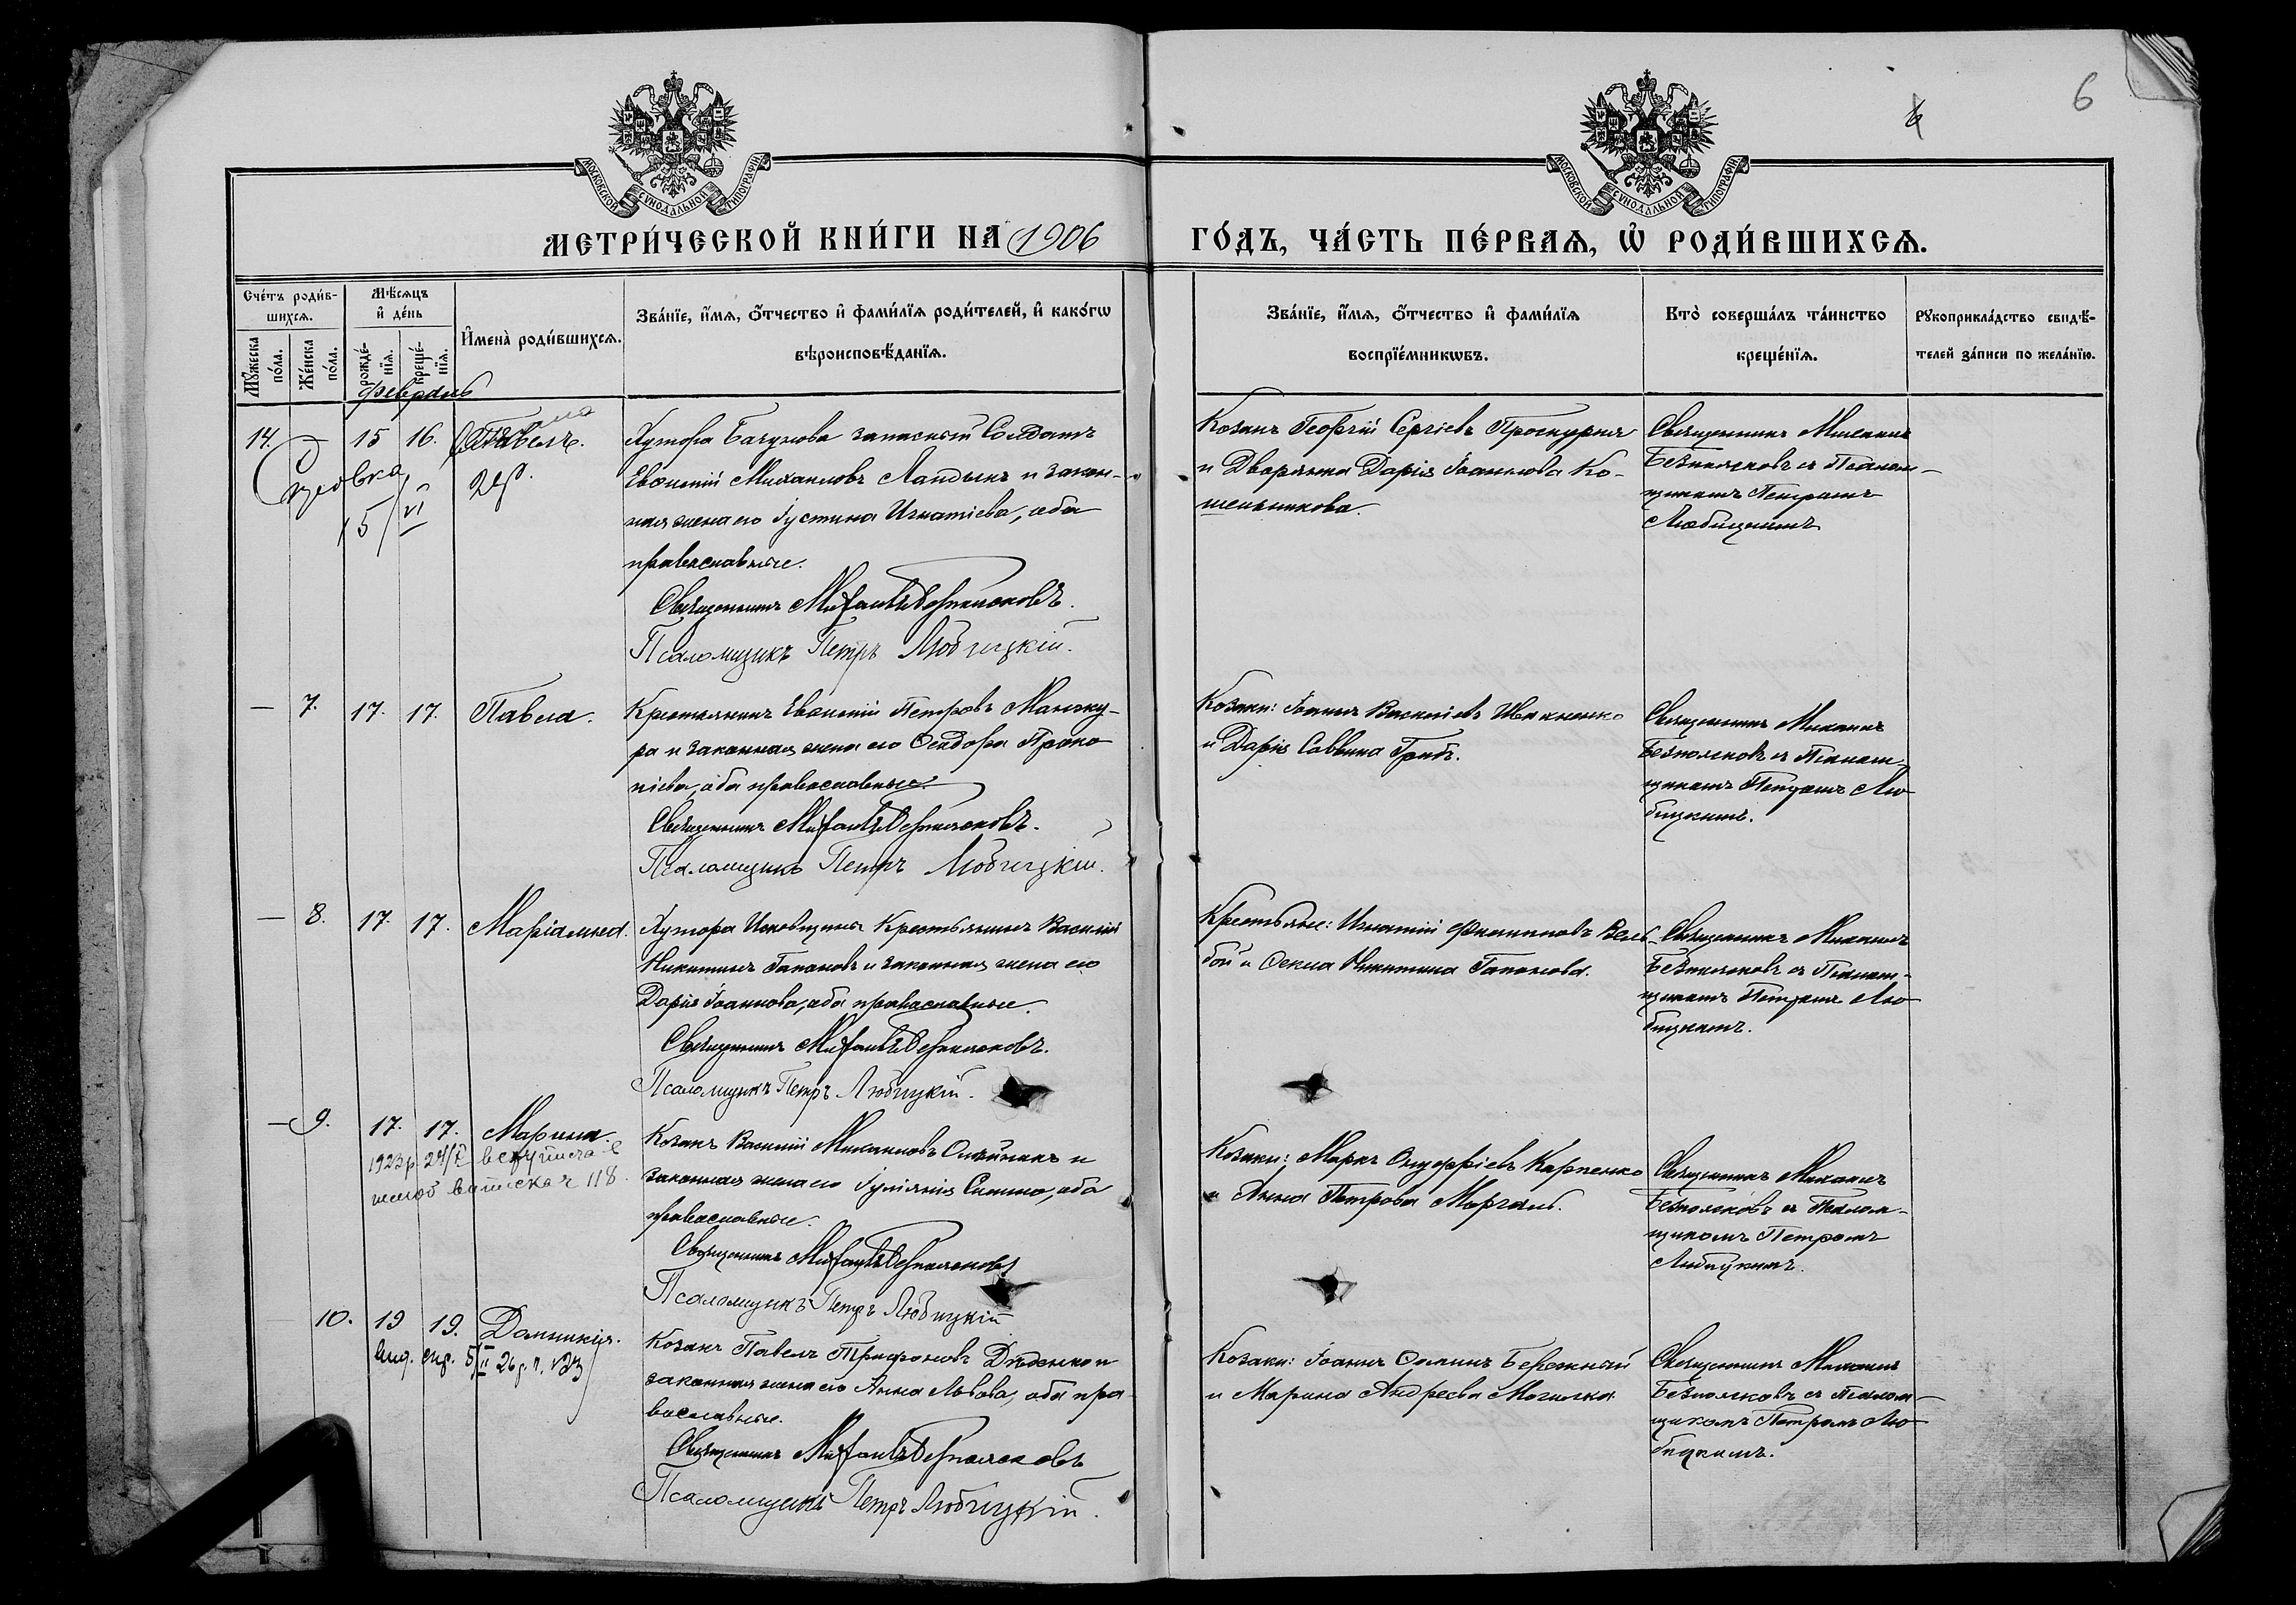 6
6
МОСКОВСКОЙ СѴНОДАЛЬНОЙ ТИПОГРАФІИ
МОСКОВСКОЙ СѴНОДАЛЬНОЙ ТИПОГРАФІИ
МЕТРИ́ЧЕСКОЙ КНИ́ГИ НА 1906
ГО́ДЪ, ЧА́СТЬ ПЕ́РВАѦ, Ѡ҆ РОДИ́ВШИХСѦ.
Сче́тъ роди́в-
шихсѧ.
Мѣ́сѧцъ
и҆ де́нь
Мꙋ́жеска
по́ла.
Же́нска
по́ла.
рожде́-
нїѧ.
креще́-
нїѧ.
И҆мена̀ роди́вшихсѧ.
Зва́нїе, и҆́мѧ, ѻ҆́тчество и҆ фами́лїѧ роди́телей, и҆ како́гѡ
вѣроисповѣ́данїѧ.
Зва́нїе, и҆́мѧ, ѻ҆́тчество и҆ фами́лїѧ
воспрїе́мникѡвъ.
Кто̀ соверша́лъ та́инство
креще́нїѧ.
Рꙋкоприкла́дство свидѣ́-
телей за́писи по жела́нїю.
Февраль
14. 15 16. Павелъ.
15/VI
Хутора Бачунова запасный Солдатъ
Евѳимій Михаиловъ Ландыкъ и закон-
ная жена его Іустина Игнатіева, оба
православные.
Священникъ Михаилъ Безпоясковъ.
Псаломщикъ Петръ Любицкій.
Козакъ Георгій Сергіевъ Проскурня
и Дворянка Дарія Іоаннова Ко-
шельникова.
Священникъ Михаилъ
Безпоясковъ съ Псалом-
щикомъ Петромъ
Любицкимъ
— 7. 17. 17. Павла.
Крестьянинъ Евѳимій Петровъ Манжу-
ра и законная жена его Ѳеодора Проко
піева, оба православные.
Священникъ Михаилъ Безпоясковъ.
Псаломщикъ Петръ Любицкій.
Козаки: Іоаннъ Василіевъ Ивахненко
и Дарія Саввина Грибъ.
Священникъ Михаилъ
Безпоясковъ съ Псалом-
щикомъ Петромъ Лю
бицкимъ.
— 8. 17. 17. Маріамна.
Хутора Крестьянинъ Василій
Никитинъ Гапоновъ и законная жена его
Дарія Іоаннова, оба православные.
Священникъ Михаилъ Безпоясковъ.
Псаломщикъ Петръ Любицкій.
Крестьяне: Игнатій Филипповъ Вель-
бой и Ѳекла Никитина Гапонова.
Священникъ Михаилъ
Безпоясковъ съ Псалом-
щикомъ Петромъ Лю
бицкимъ.
— 9. 17. 17. Марина.
1923 р.
118.
Козакъ Василій Михаиловъ Олейникъ и
законная жена его Іуліанія Симина, оба
православные.
Священникъ Михаилъ Безпоясковъ
Псаломщикъ Петръ Любицкій
Козаки: Маркъ Онуфріевъ Карпенко
и Анна Петрова Моргаль.
Священникъ Михаилъ
Безпоясковъ съ Псалом-
щикомъ Петромъ
Любицкимъ.
10. 19 19. Домникія.
Козакъ Павелъ Трифоновъ Дѣденко и
законная жена его Анна Львова, оба пра-
вославные.
Священникъ Михаилъ Безпоясковъ
Псаломщикъ Петръ Любицкій.
Козаки: Іоаннъ Ѳоминъ Бережный
и Марина Андреева Могилка
Священникъ Михаилъ
Безпоясковъ съ Псалом-
щикомъ Петромъ Лю
бицкимъ.